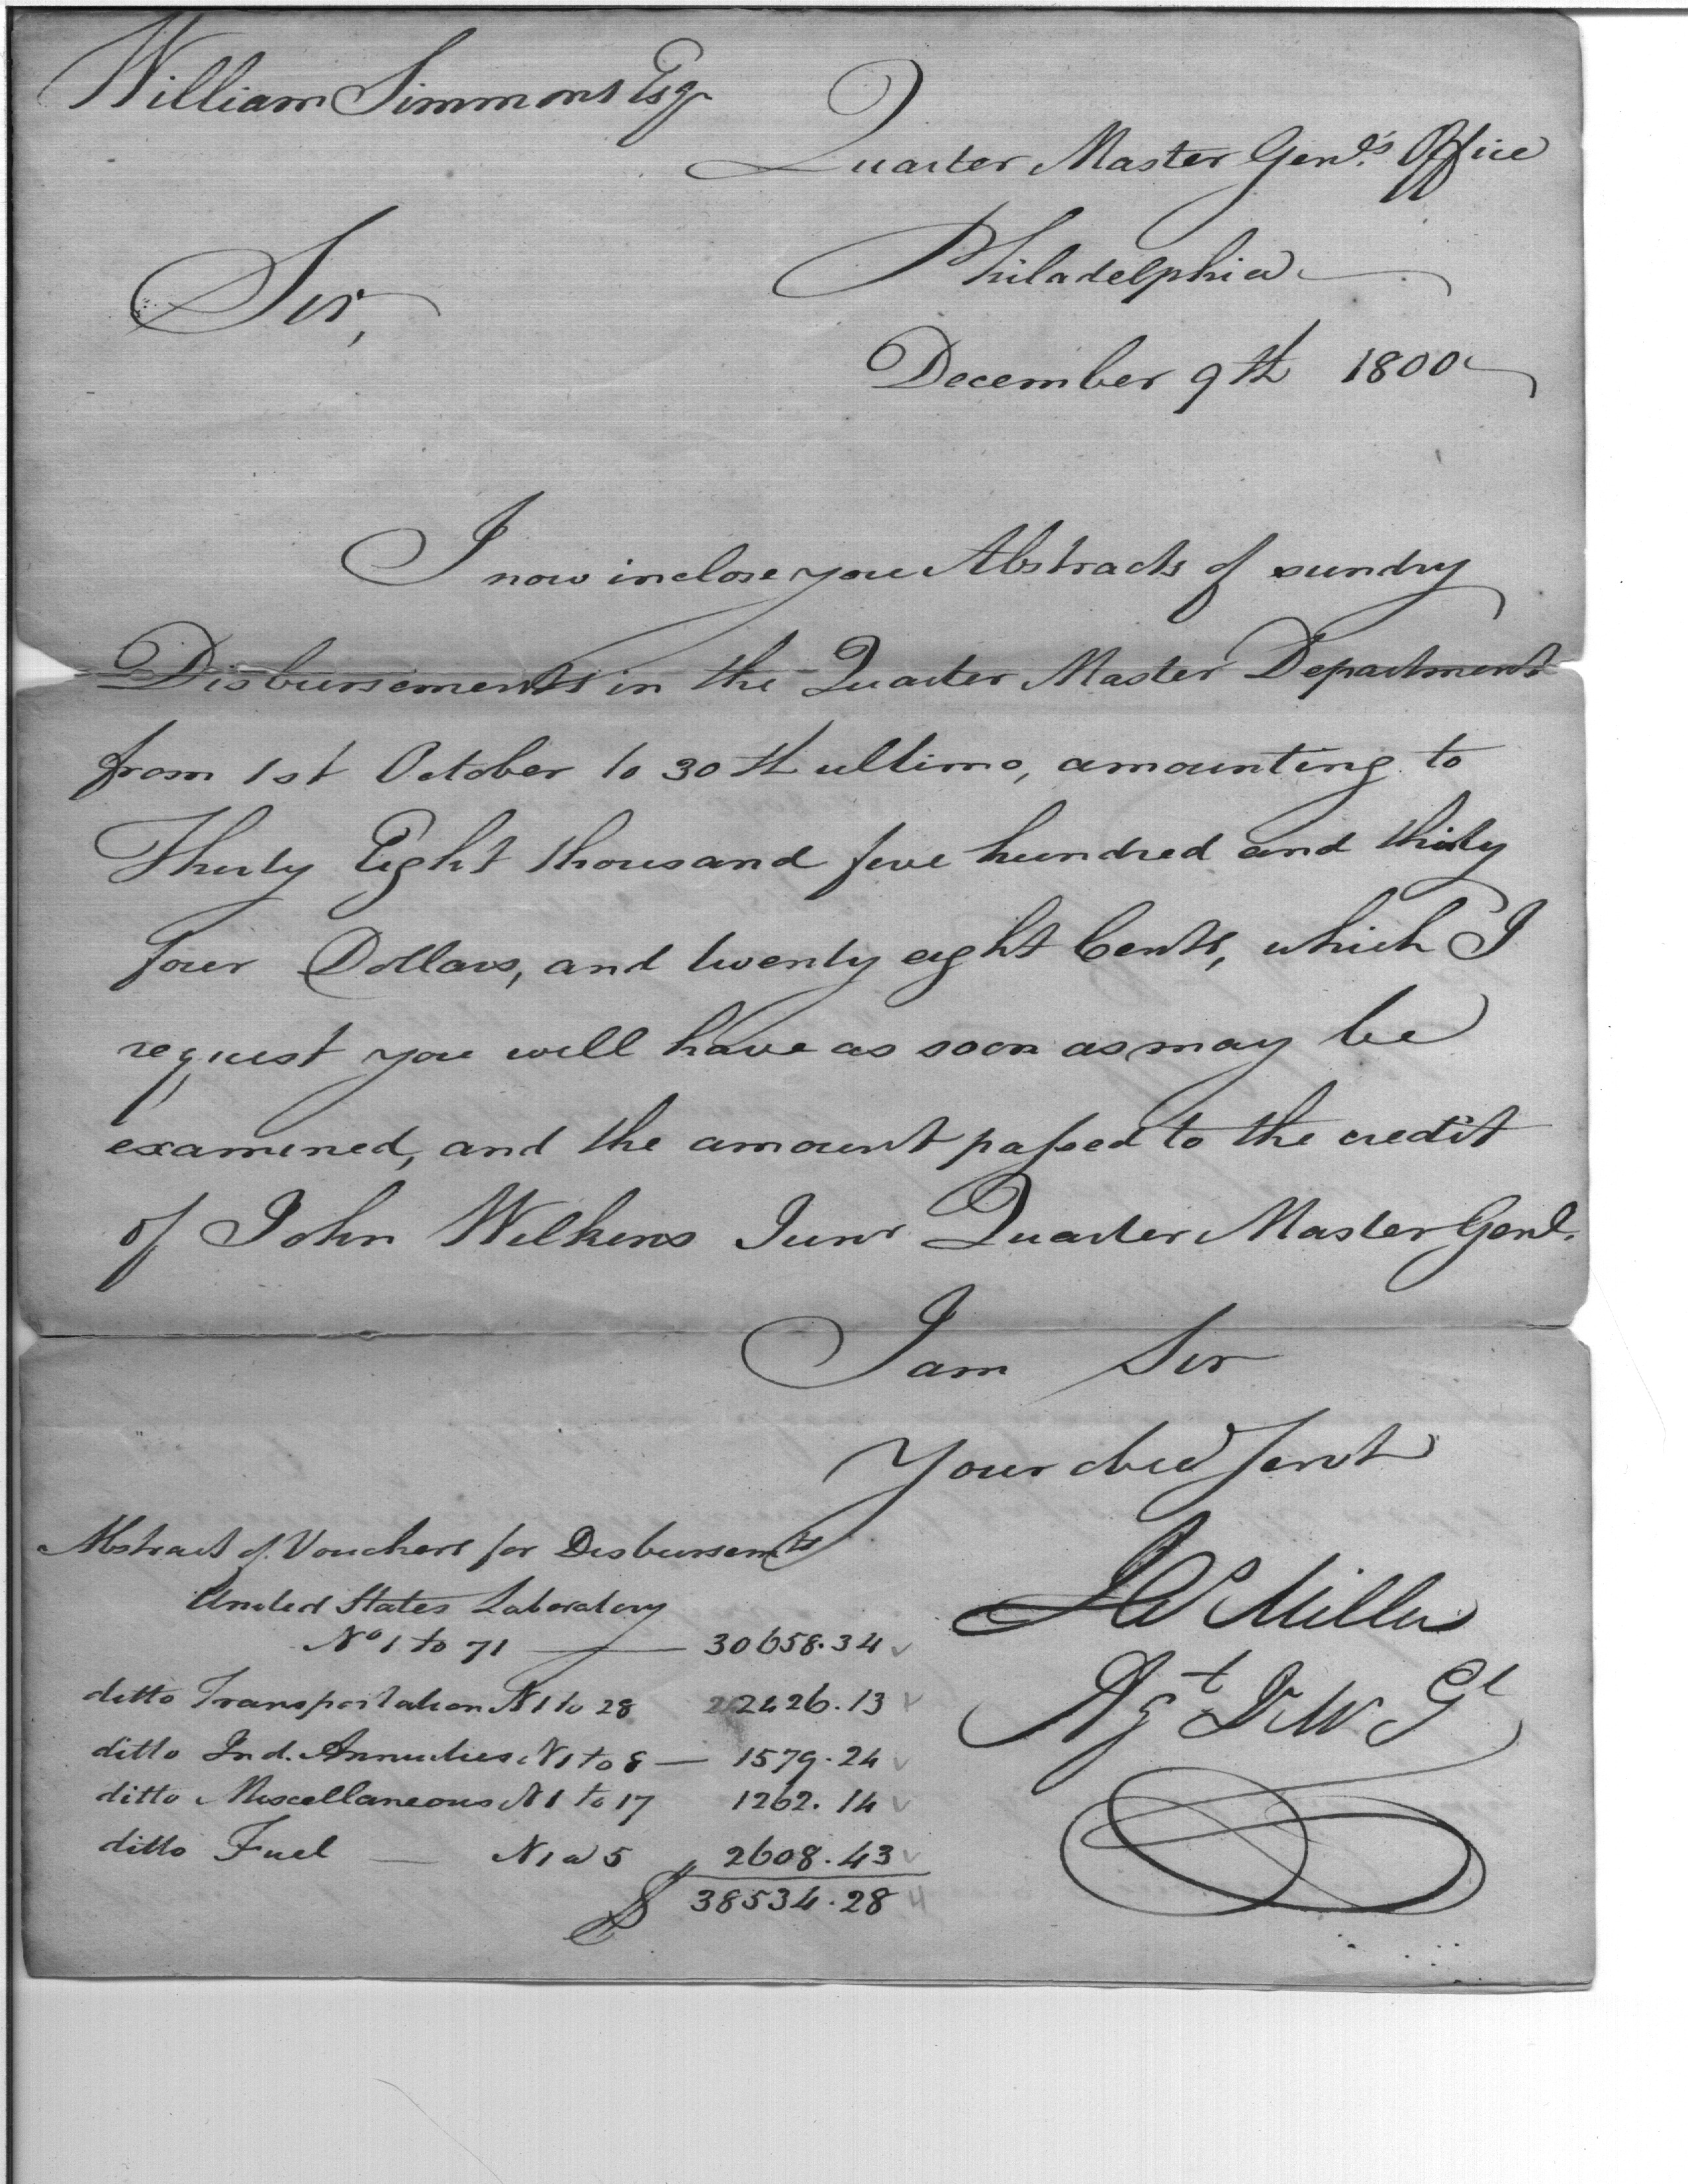 William Simmons Esqr
Quarter Master Genl's Office
Philadelphia
Sir,
December 9th 1800
I now inclose you Abstracts of sundry
Disbursements in the Quarter Master Department
from 1st October to 30th ultimo, amounting to
Thirty Eight thousand five hundred and thirty
four Dollars, and twenty eight Cents, which I
request you will have as soon as may be
examined, and the amount passed to the credit
of John Wilkins Junr Quarter Master Genl.
I am Sir
Your obed Servt
Miller
Agt Q M Gl
Abstract of Vouchers for Disbursemts
United States Laboratory
No 1 to 71 — 30658.34
ditto Transportation N 1 to 28 2426.13
ditto Ind. Annuities N 1 to 8 — 1579.24
ditto Miscellaneous N 1 to 17 1262.14
ditto Fuel — N 1 a 5 2608.43
$ 38534.28